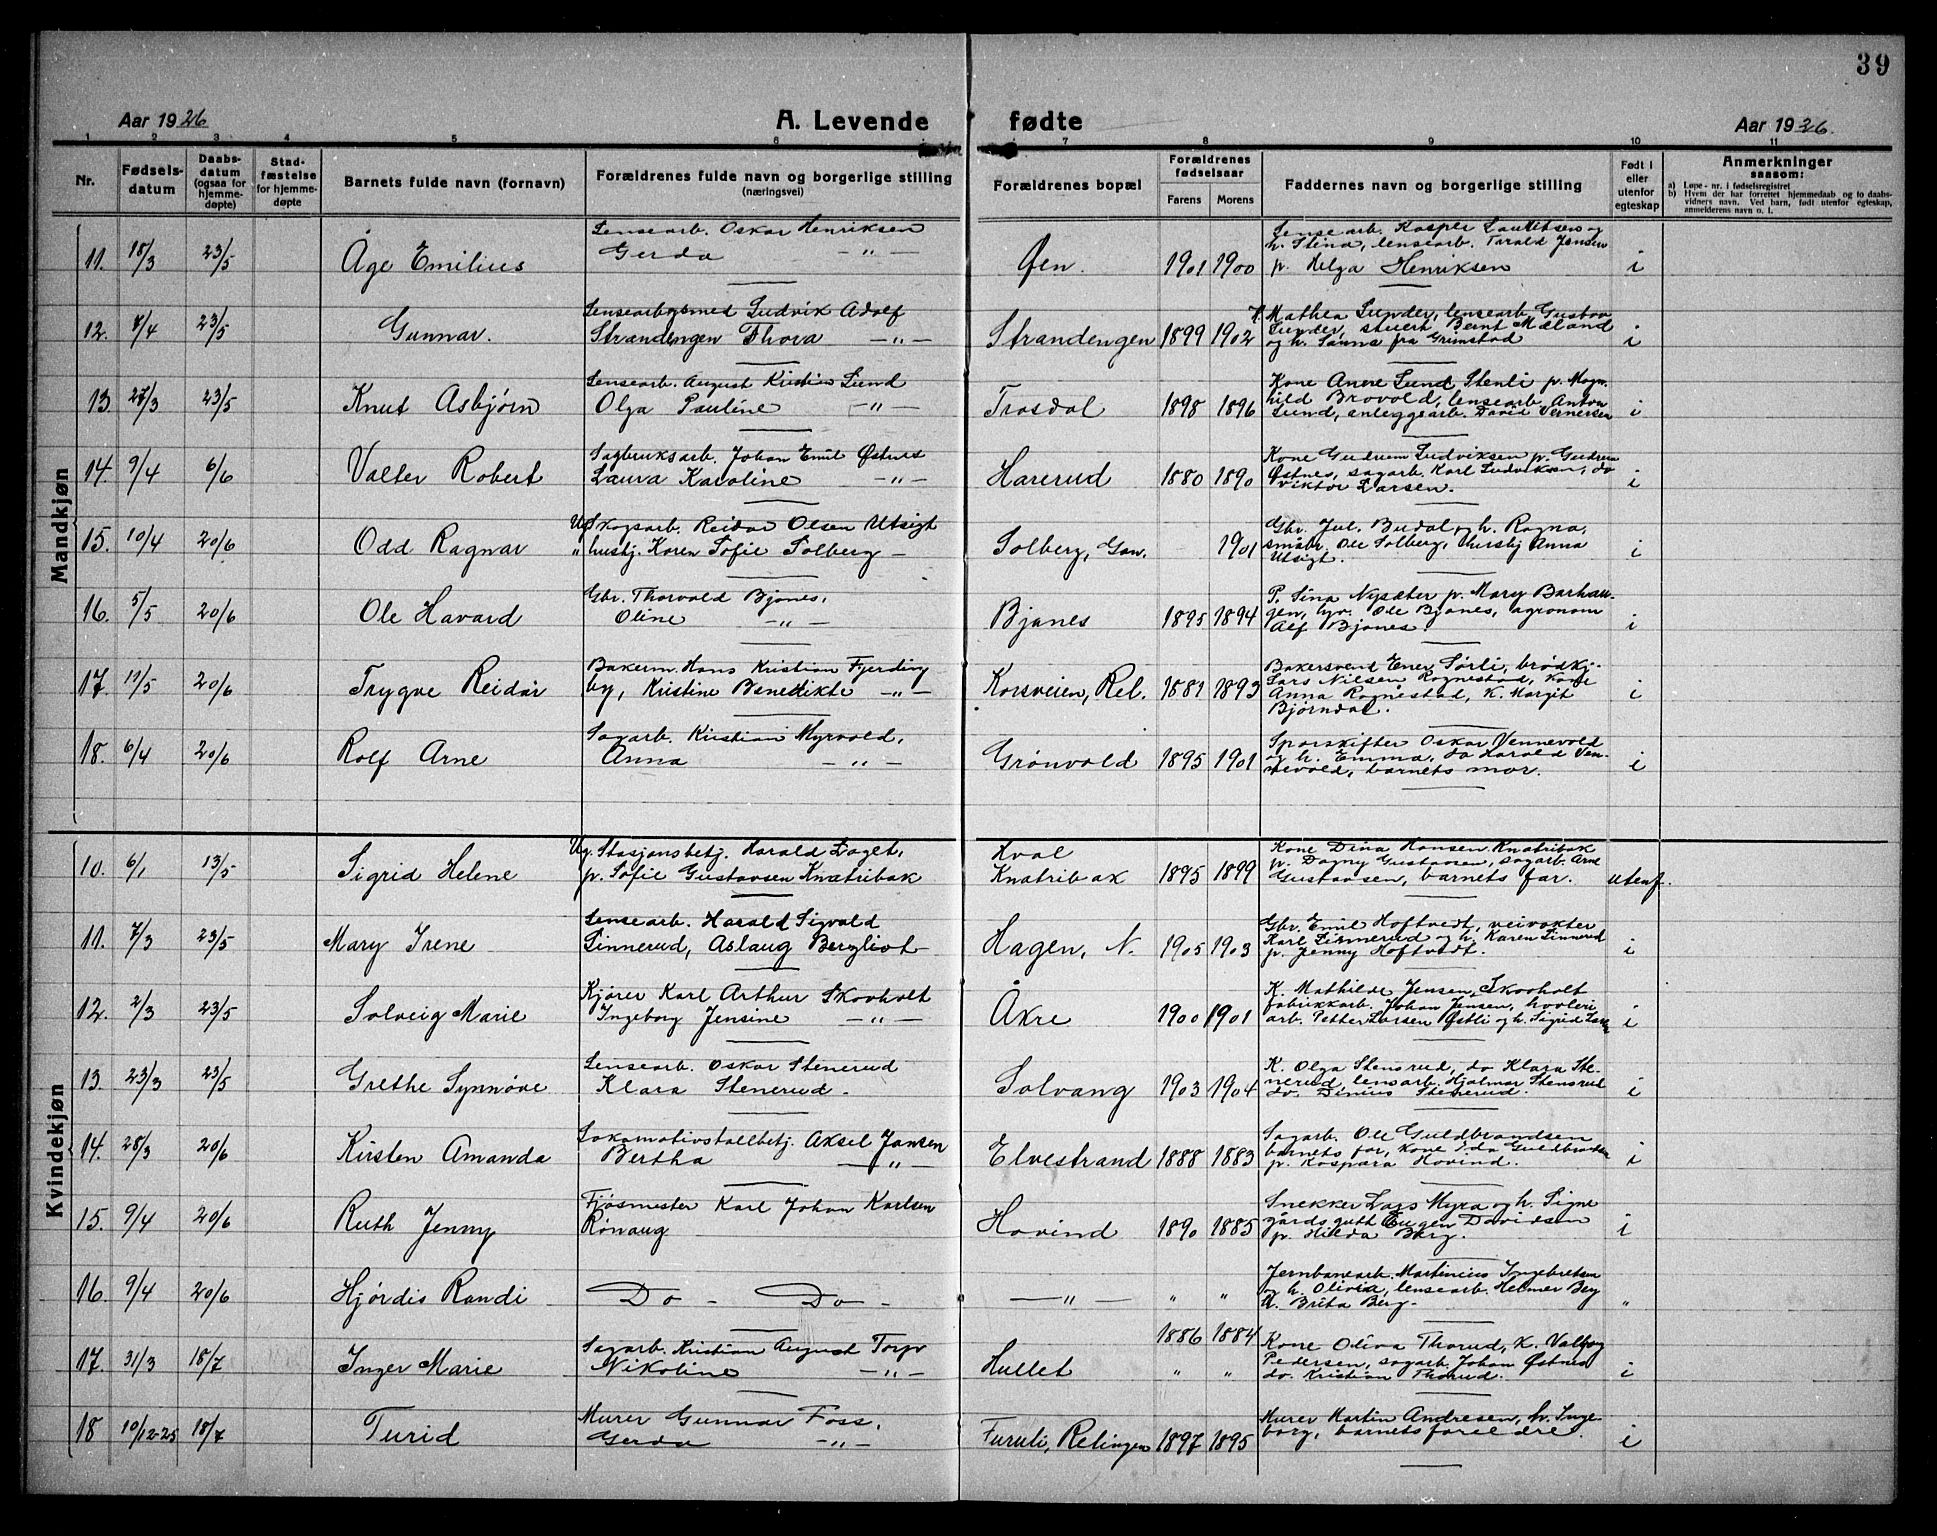 39
Aar 1926 A. Levende fødte Aar 1926.
1 2 3 4 5 6 7 8 9 10 11
Nr. Fødselsdatum Daabsdatum (ogsaa for hjemmedøpte) Stadfæstelse for hjemmedøpte Barnets fulde navn (fornavn) Forældrenes fulde navn og borgerlige stilling (næringsvei) Forældrenes bopæl Forældrenes fødselsaar Farens Morens Faddernes navn og borgerlige stilling Født i eller utenfor egteskap Anmerkninger saasom:
a) Løpe-nr. i fødselsregistret
b) Hvem der har forrettet hjemmedaab og to daabsvidners navn. Ved barn, født utenfor egteskap, anmelderens navn o. l.
Mandkjøn
11. 18/3 23/5 Åge Emilius Lensearb. Oskar Henriksen
Gerda — " — Øen. 1901 1900 Lensearb. Kasper Lauritsen og
h. Stina, lensearb. Tarald Jensen
p. Helga Henriksen i
12. 1/4 23/5 Gunnar. Lensearb. Ludvik Adolf
Strandengen Thora — " — Strandengen 1899 1902 K. Mathea Sunder, lensearb. Gustav
Sunder, stuert Bernt Mæland
og h. Sanna fra Grimstad i
13. 27/3 23/5 Knut Asbjørn Lensearb. August Kristian Lund
Olga Pauline — " — Trosdal 1898 1896 Kone Anne Lund Stenli p. Magnhild
Brovold, lensearb. Anton
Lund, anleggsarb. David Vernersen i
14. 9/4 6/6 Valter Robert Sagbruksarb. Johan Emil Østnes
Laura Karoline — " — Harerud 1880 1890 Kone Gudrun Ludviksen p. Gudrun
Østnes, sagarb. Karl Ludviksen, do
Viktor Larsen. i
15. 10/4 20/6 Odd Ragnar Ug. Skogsarb. Reidar Olsen Utsigt
" hushj. Karen Sofie Solberg — Solberg, Gan. 1901 Gbr. Jul. Budal og h. Ragna,
småbr. Ole Solberg, hushj Anna
Utsigt. i
16. 5/5 20/6 Ole Havard Gbr. Thorvald Bjanes,
Oline — " — Bjanes 1895 1894 P. Sina Nysæter p. Mary Barhaugen,
Ole Bjanes, agronom
Alf Bjanes. i
17. 11/5 20/6 Trygve Reidar Bakerm. Hans Kristian Fjerdingby,
Kristine Benedikte — " — Korsveien, Rel. 1881 1893 Bakersvend Ener Sørli, brødkj.
Lars Nilsen Rognestad, Kone
Anna Rognestad, K. Margit
Bjørndal. i
18. 6/4 20/6 Rolf Arne Sagarb. Kristian Myrvold,
Anna — " — Grønvold 1895 1901 Sporskifter Oskar Vennevold
og h. Emma, do Harald Vennevold,
barnets mor. i
Kvindekjøn
10. 6/1 13/5 Sigrid Helene Ug. Stasjonsbetj. Harald
p. Sofie Gustavsen Knatribak Hval
Knatribak 1895 1899 Kone Dina Hansen Knatribak
p. Dagny Gustavsen, sagarb. Arne
Gustavsen, barnets far. utenf.
11. 7/3 23/5 Mary Irene Lensearb. Harald Sigvald
Linnerud, Aslaug Bergliot — Hagen, N. 1905 1903 Gbr. Emil Hoftvedt, veivokter
Karl Linnerud og h. Karen Linnerud
p. Jenny Hoftvedt. i
12. 2/3 23/5 Solveig Marie Kjører Karl Arthur Skovholt
Ingeborg Jensine — " — Åkre 1900 1901 K. Mathilde Jensen, Skovholt
fabrikkarb. Johan Jensen, høvleriarb.
Petter Larsen Østli og h. Sigrid i
13. 23/3 23/5 Grethe Synnøve Lensearb. Oskar Stenerud
Klara Stenerud. Solvang 1903 1904 K. Olga Stensrud, do Klara Stenerud,
lensarb. Hjalmar Stensrud
do. Dinius Stenerud. i
14. 28/3 20/6 Kirsten Amanda Lokomotivstallbetj. Aksel Jansen
Bertha — " — Elvestrand 1888 1883 Sagarb. Ole Guldbrandsen
barnets far, kone Ida Guldbrandsen
p. Kaspara Hovind. i
15. 9/4 20/6 Ruth Jenny Fjøsmester Karl Johan Karlsen
Rønaug Hovind 1890 1885 Snekker Lars Myra og h. Signe
gårdsgutt Eugen Davidsen
p. Hilda Berg. i
16. 9/4 20/6 Hjørdis Randi Do — Do — — " — " " Jernbanearb. Martinius Ingebretsen
og h. Olivia, lensearb. Helmer Berg
K. Brita Berg. "
17. 31/3 18/7 Inger Marie Sagarb. Kristian August Torp
Nikoline — " — Hullet 1886 1884
" " Kone Oliva Thorud, K. Valborg
Pedersen, sagarb. Johan Østnes
do. Kristian Thorud. i
18 10/12-25 18/7 Turid Murer Gunnar Foss,
Gerda — " — Furuli, Relingen 1897 1895 Murer Martin Andresen, h. Ingeborg,
barnets foreldre. i